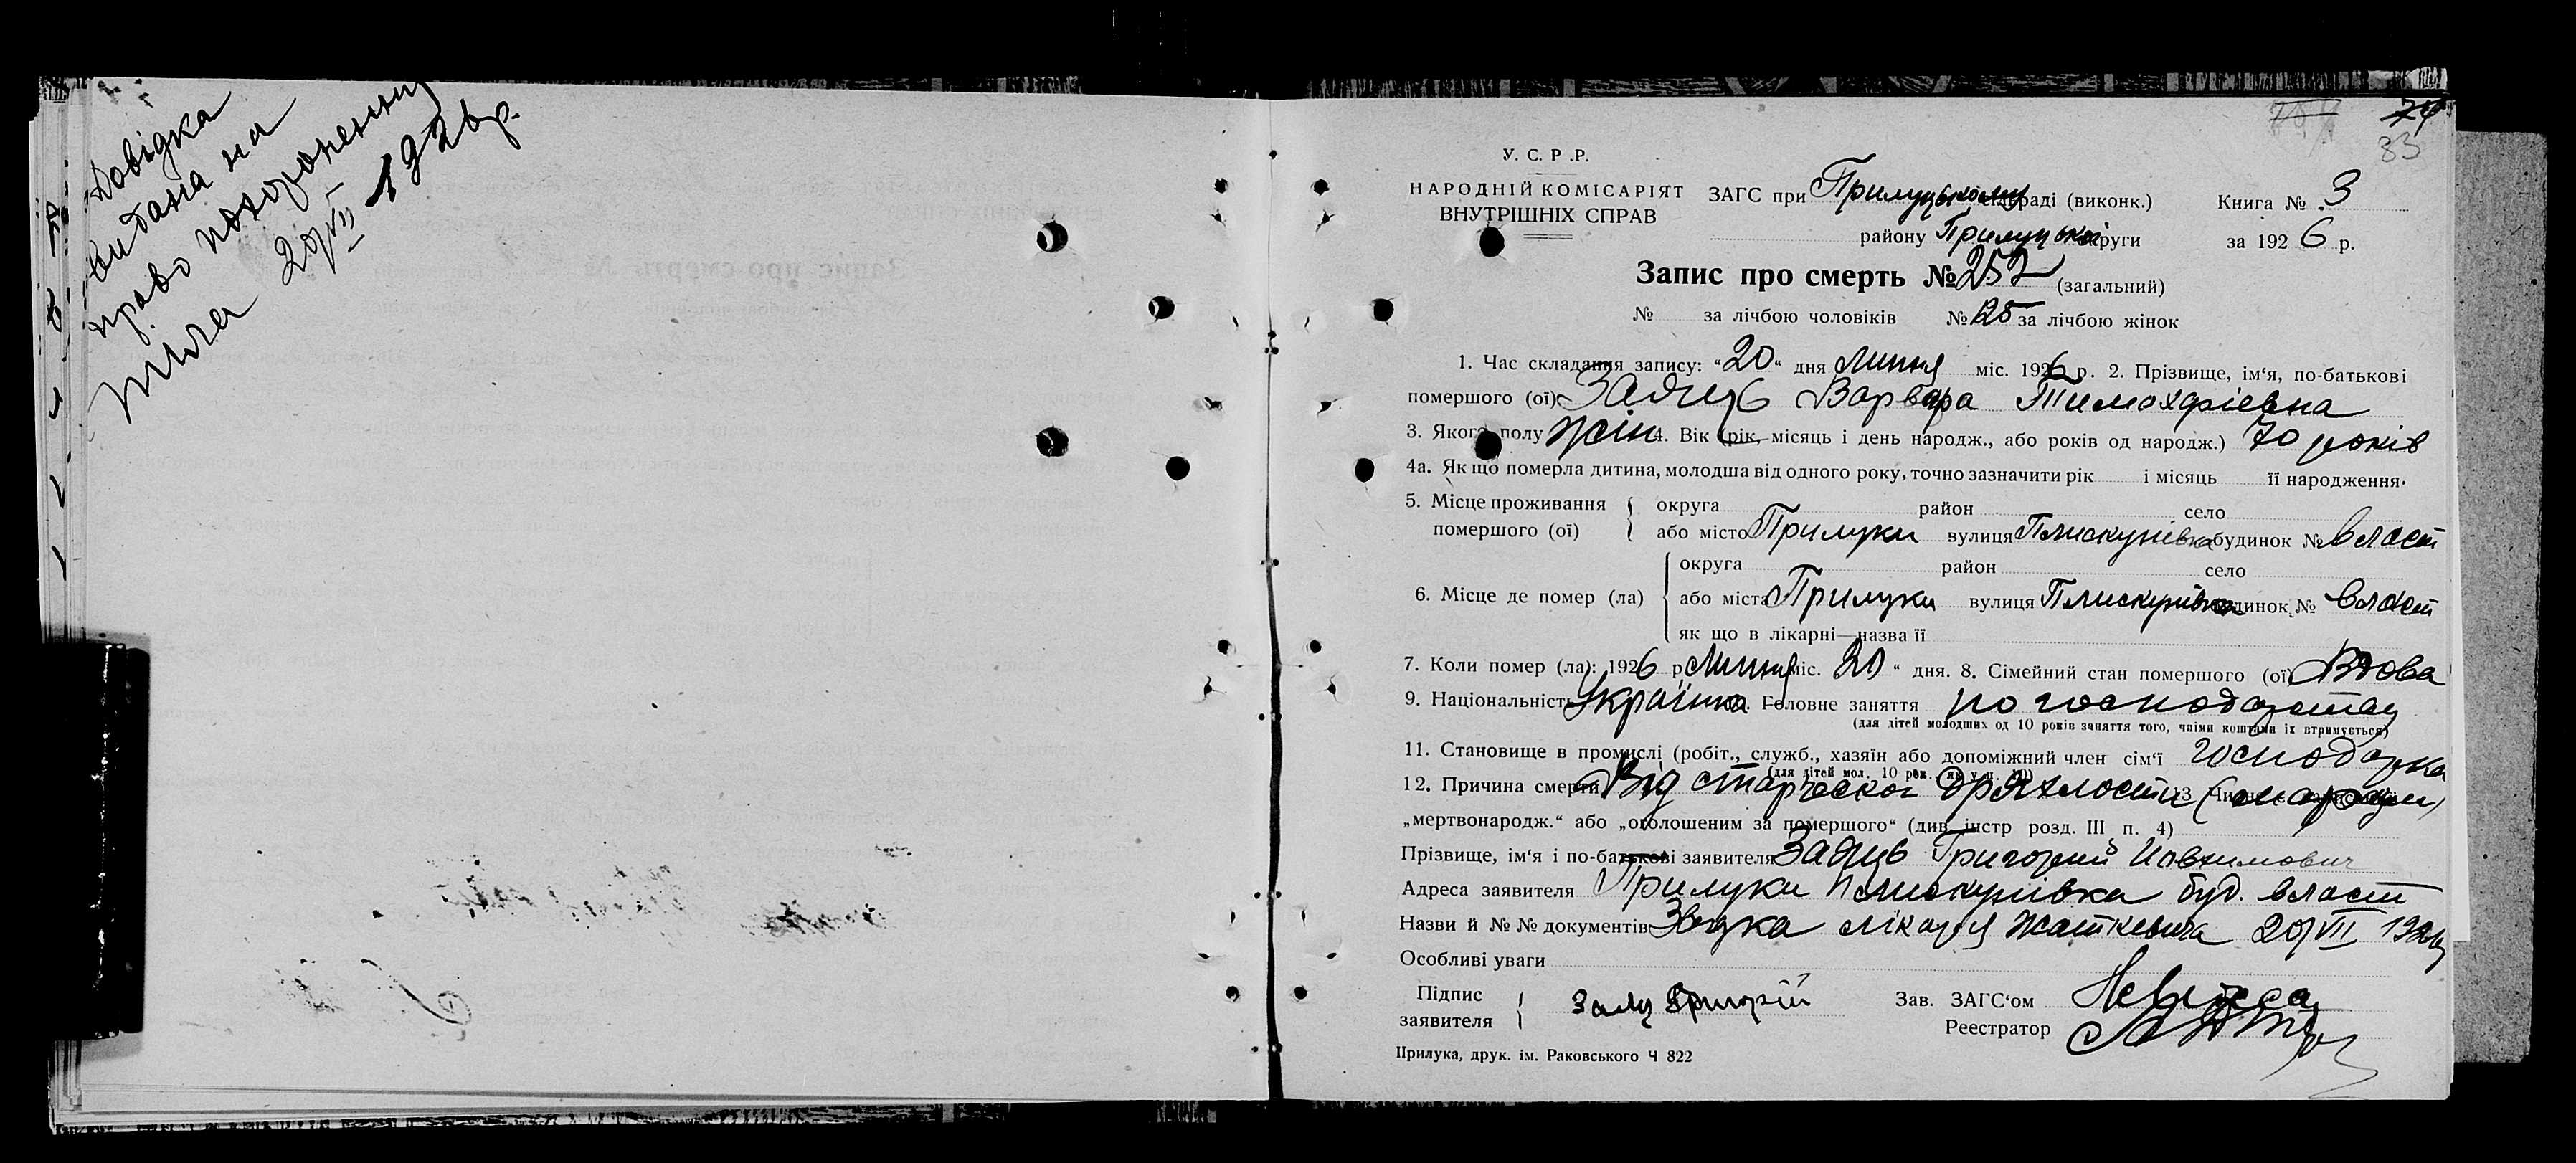 Довідка
видана на
право похоронения
тіла 20/VII 1926 р.
74
33
У. С. Р. Р.
НАРОДНІЙ КОМІСАРІЯТ
ВНУТРІШНІХ СПРАВ
ЗАГС при Прилуцькому раді (виконк.)
Книга № 3
району Прилуцької округи
за 1926 р.
Запис про смерть № 257 (загальний)
№ за лічбою чоловіків № 125 за лічбою жінок
1. Час складання запису: “20“ дня Липня міс. 1926 р. 2. Прізвище, ім‘я, по-батькові
помершого (ої) Заяць Варвара
3. Якого полу жін. 4. Вік (рік, місяць і день народж., або років од народж.) 70 років
4а. Як що померла дитина, молодша від одного року, точно зазначити рік і місяць її народження.
5. Місце проживання помершого (ої)
округа район село
або місто Прилуки вулиця Плискунівка будинок № власт
6. Місце де помер (ла)
округа район село
або міста Прилуки вулиця Плискунівка будинок № власт
як що в лікарні—назва її
7. Коли помер (ла): 1926 р. Липня міс. 20 “ дня. 8. Сімейний стан помершого (ої) Вдова
9. Національність Українка 10. Головне заняття по господарству
(для дітей молодших од 10 років заняття того, чиїми коштами їх втримується)
11. Становище в промислі (робіт., служб., хазяїн або допоміжний член сім‘ї господарка
(для дітей мол. 10 рок. як у п. 10)
12. Причина смерти Від старческої дряхлости 13
„мертвонародж.“ або „оголошеним за помершого“ (див. інстр розд. III п. 4)
Прізвище, ім‘я і по-батькові заявителя Заяць Григорий
Адреса заявителя Прилуки Плискунівка буд. власт
Назви й №№ документів Звідка лікаря Жаткевича 20/VII 1926
Особливі уваги
Підпис заявителя Заяц Григорій
Зав. ЗАГС‘ом
Реестратор
Прилука, друк. ім. Раковського Ч 822